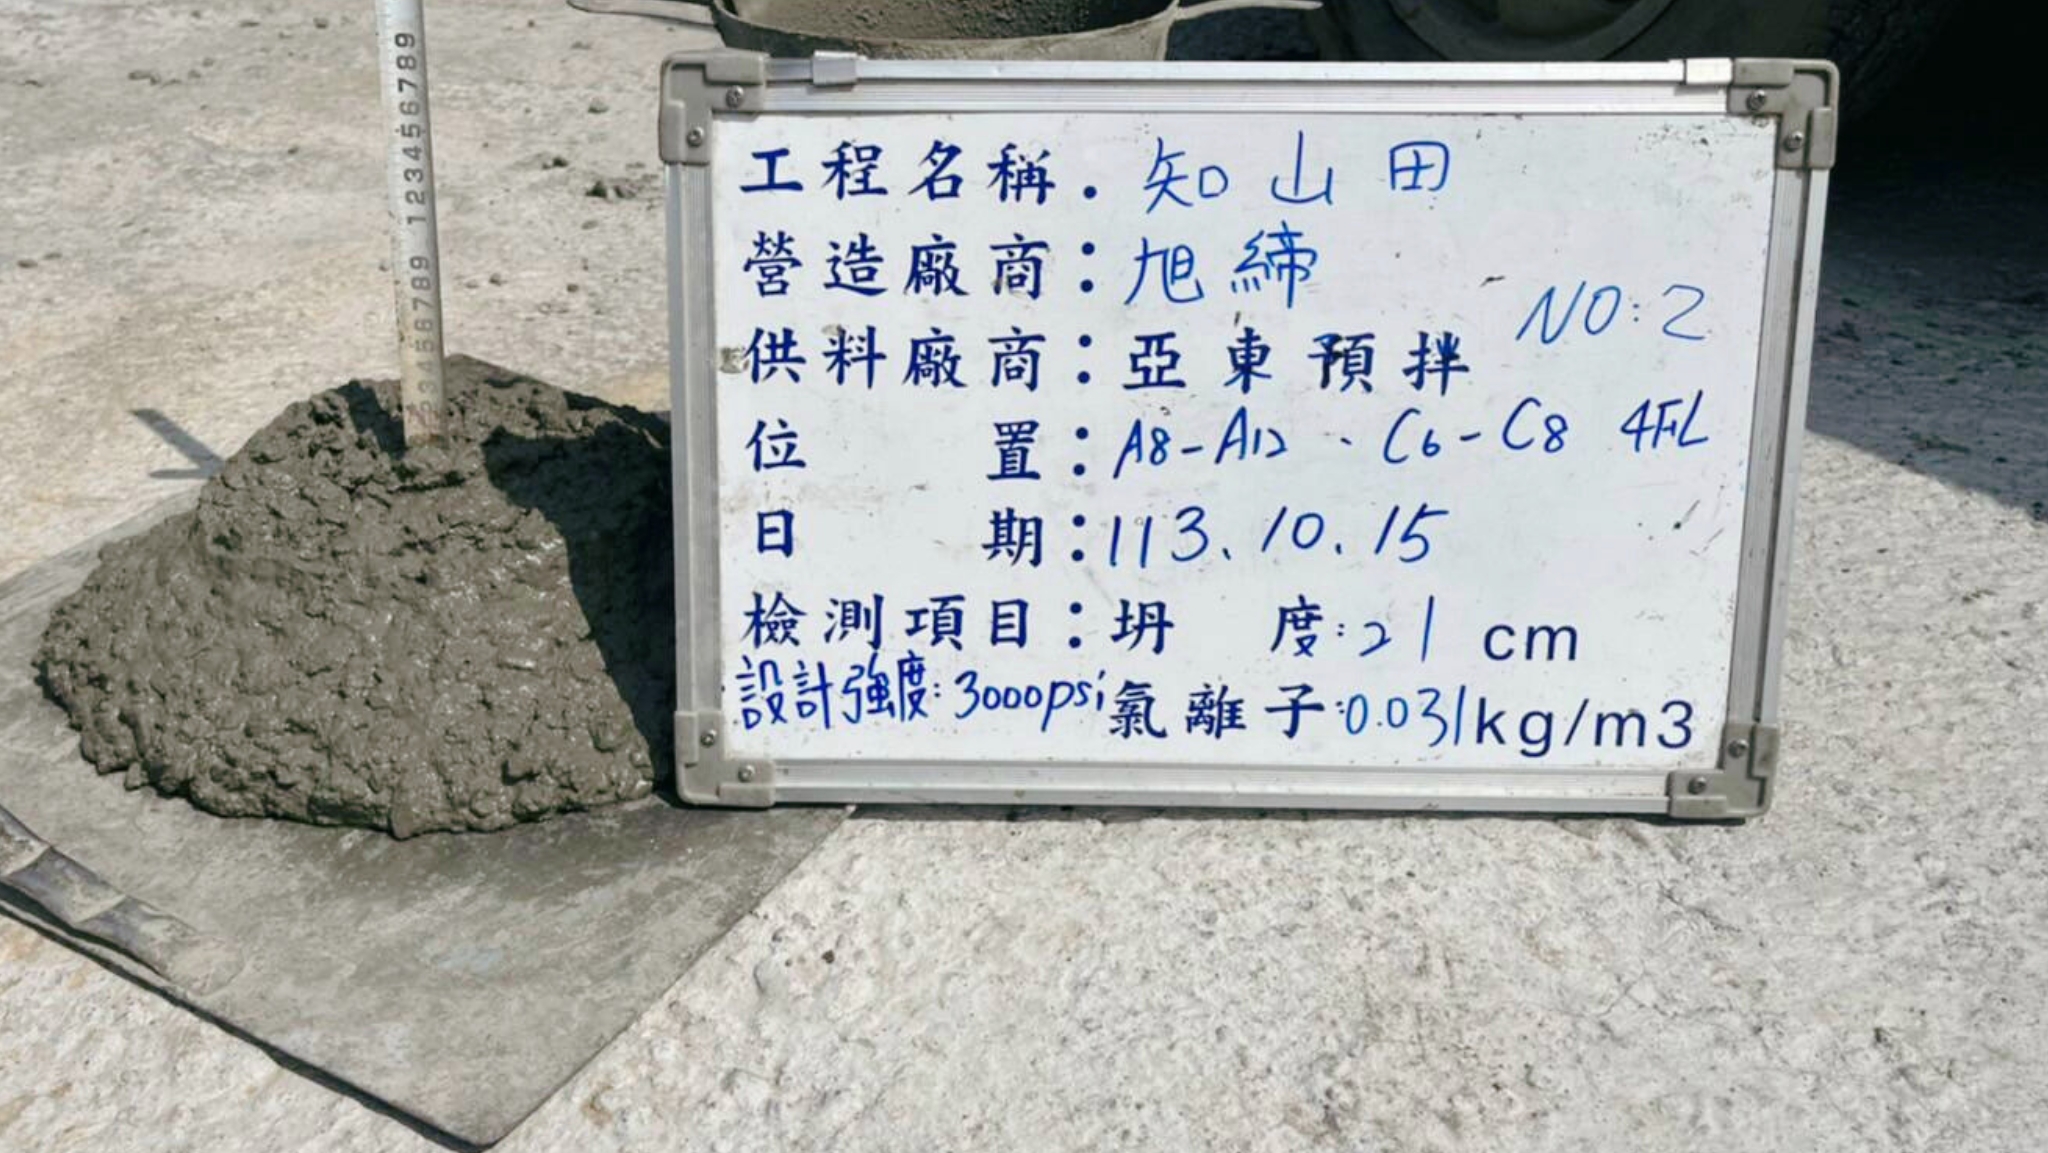 123456789 123456789
工程名稱：知山田
營造廠商：旭締
NO:2
供料廠商：亞東預拌
位置：A8-A12、C6-C8 4FL
日期：113.10.15
檢測項目：坍度:21 cm
設計強度:3000psi 氯離子:0.031kg/m3